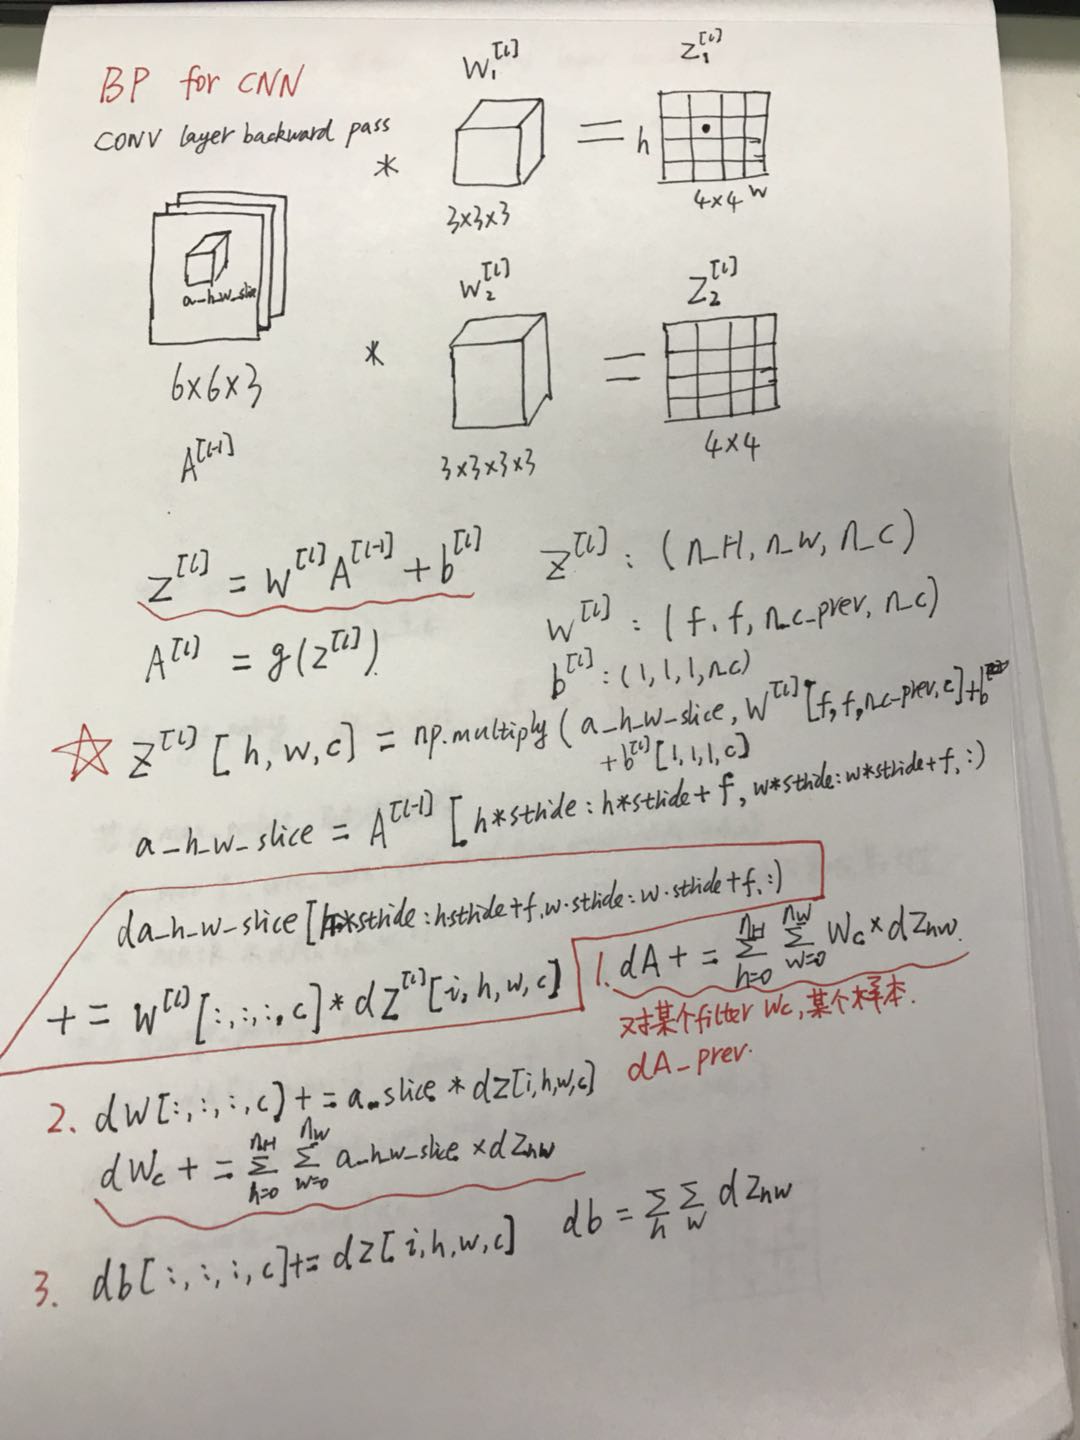 BP for CNN
CONV layer backward pass
* W₁^[l] = h Z₁^[l]
3×3×3
4×4 w
a_h_w_slice
6×6×3
A^[l-1]
* W₂^[l] = Z₂^[l]
3×3×3×3
4×4
Z^[l] = W^[l] A^[l-1] + b^[l]
A^[l] = g(Z^[l])
Z^[l] : (n_H, n_W, n_C)
W^[l] : (f, f, n_c_prev, n_c)
b^[l] : (1, 1, 1, n_c)
Z^[l] [h, w, c] = np.multiply( a_h_w_slice, W^[l] [f, f, n_c_prev, c] + b
+ b^[l] [1, 1, 1, c]
a_h_w_slice = A^[l-1] [h*stride : h*stride + f, w*stride : w*stride + f, :)
da_h_w_slice [h*stride : h·stride + f, w·stride : w·stride + f, :)
+= W^[l] [:, :, :, c] * dZ^[l] [i, h, w, c]
1. dA += Σ_{h=0}^{nH} Σ_{w=0}^{nW} Wc × dZhw.
对某个filter Wc, 某个样本.
dA_prev.
2. dW[:, :, :, c) += a_slice * dZ[i, h, w, c]
dWc += Σ_{h=0}^{nH} Σ_{w=0}^{nW} a_h_w_slice × dZhw
3. db[:, :, :, c] += dZ[i, h, w, c]
db = Σ_h Σ_w dZhw